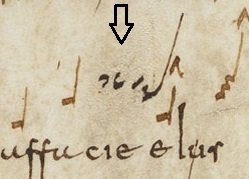 uffucie elur